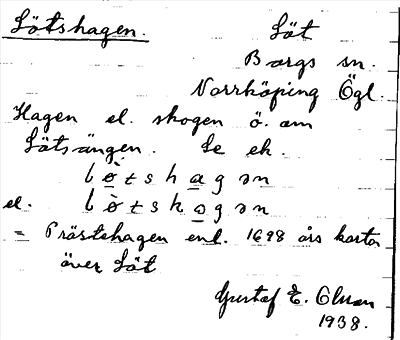 Lötshagen.
Löt
Borgs sn.
Norrköping Ögl.
Hagen el. skogen ö. om
Lötsängen. Se ek.
lø̀tshagən
el. lø̀tshɔgən
= Prästehagen enl. 1698 års karta
över Löt
Gustaf E. Olsson
1938.